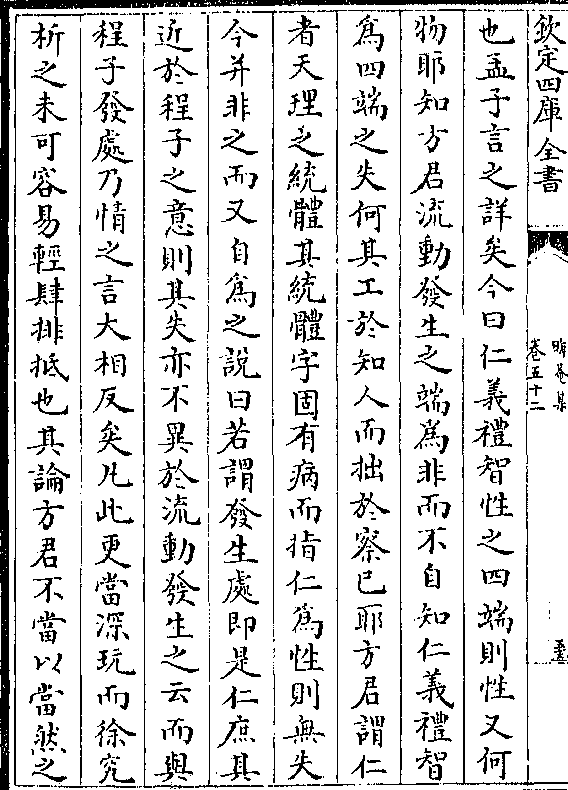 欽定四庫全書
晦菴集
卷五十二
也孟子言之詳矣今曰仁義禮智性之四端則性又何
物耶知方君流動發生之端爲非而不自知仁義禮智
爲四端之失何其工於知人而拙於察已耶方君謂仁
者天理之統體其統體字固有病而指仁爲性則無失
今并非之而又自爲之說曰若謂發生處即是仁庶其
近於程子之意則其失亦不異於流動發生之云而與
程子發處乃情之言大相反矣凡此更當深玩而徐究
析之未可容易輕肆排抵也其論方君不當以當然之